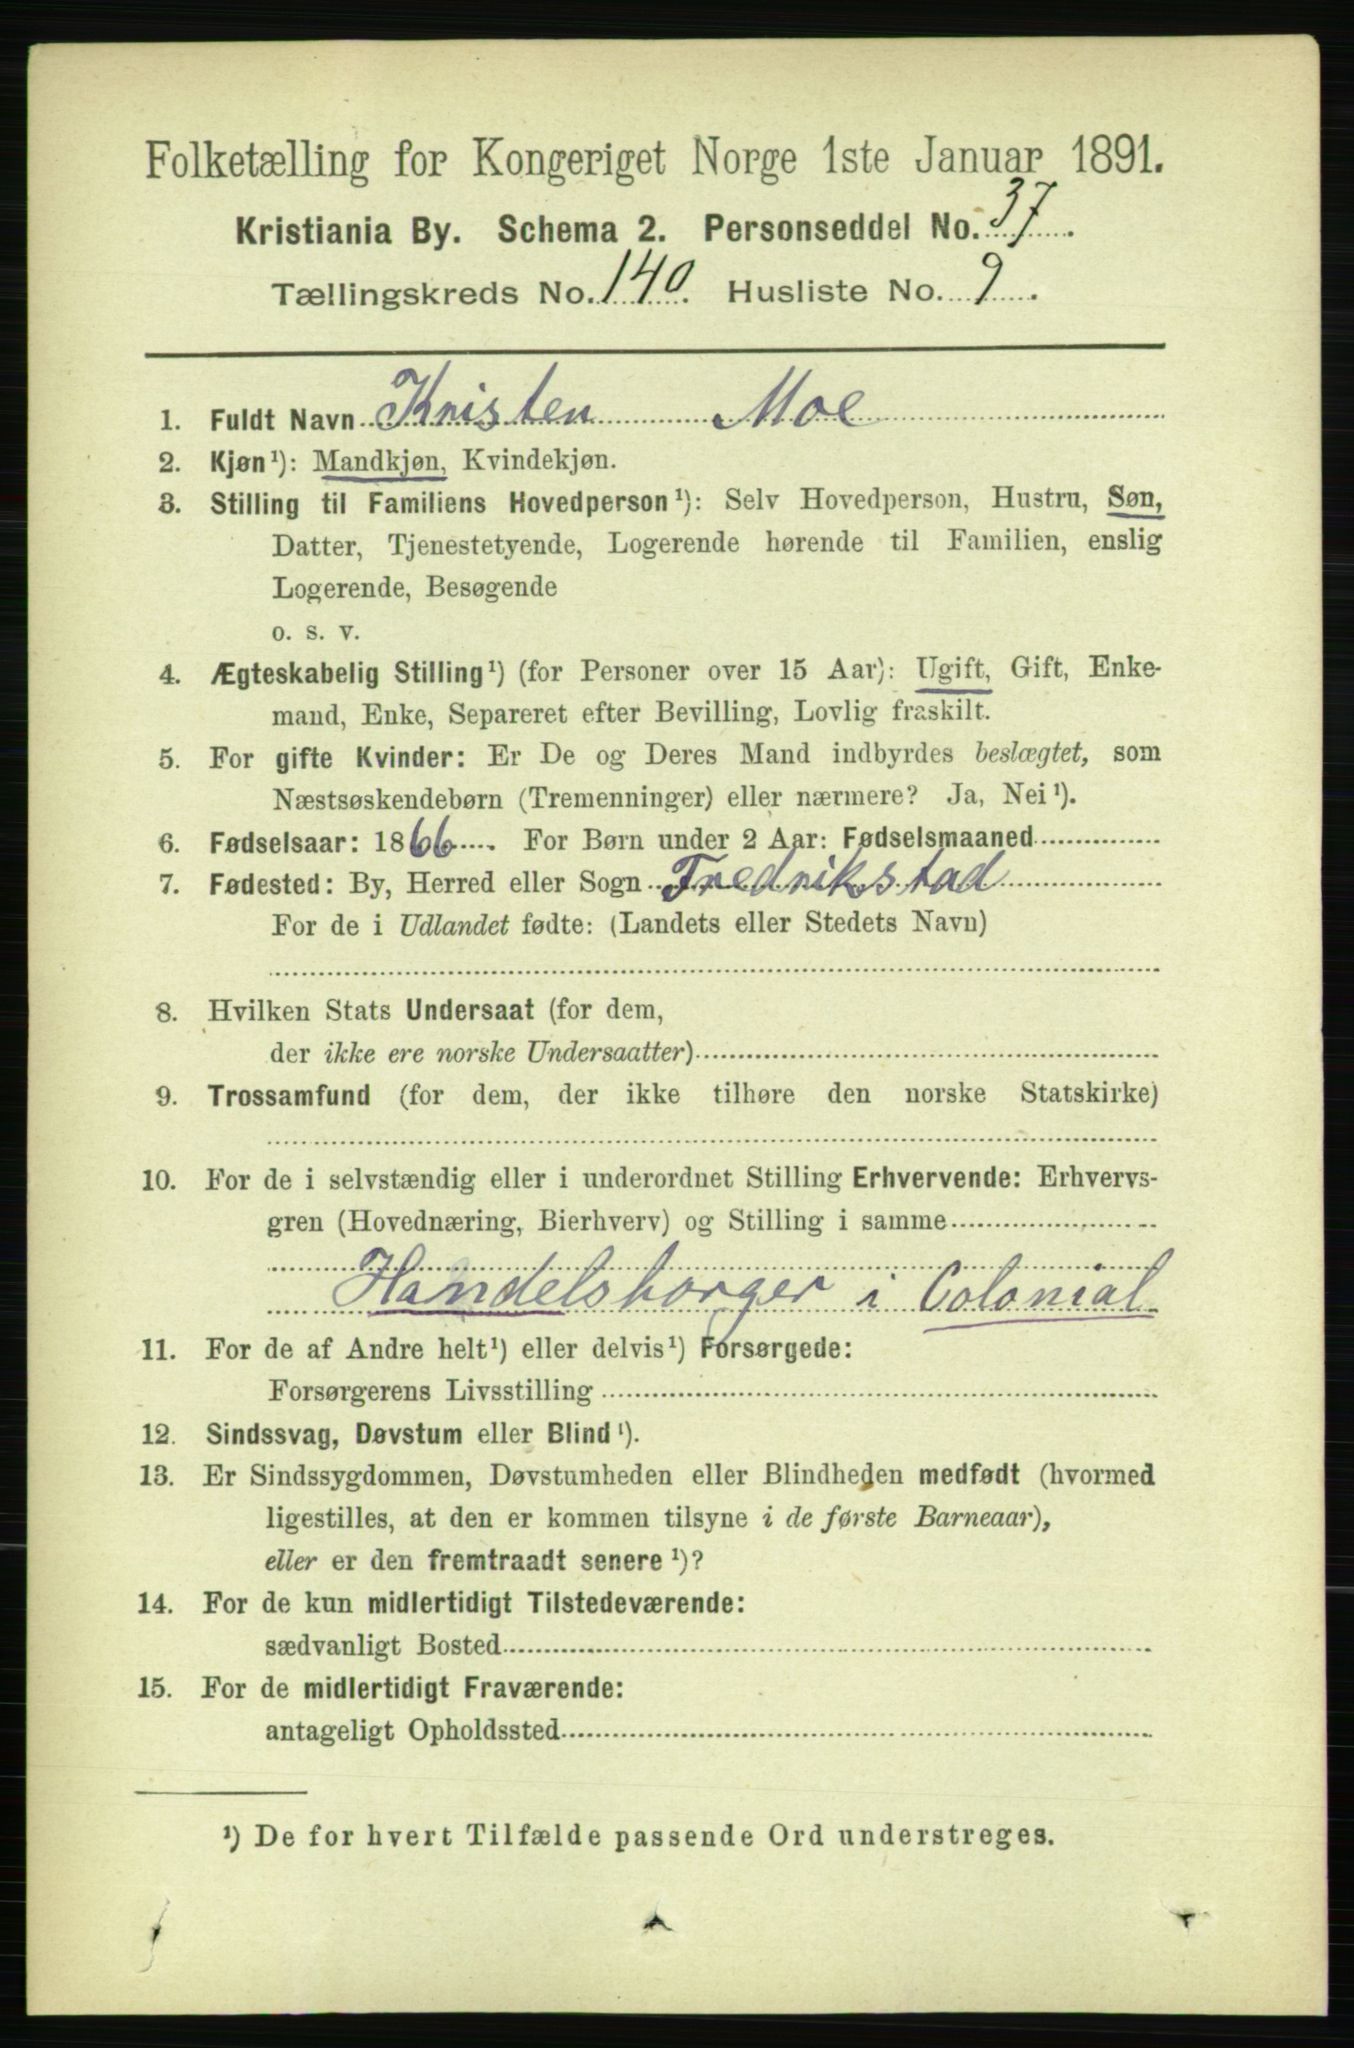 Folketælling for Kongeriget Norge 1ste Januar 1891.
Kristiania By. Schema 2. Personseddel No. 37.
Tællingskreds No. 140. Husliste No. 9.
1. Fuldt Navn Kristen Moe
2. Kjøn¹): Mandkjøn, Kvindekjøn.
3. Stilling til Familiens Hovedperson¹): Selv Hovedperson, Hustru, Søn,
Datter, Tjenestetyende, Logerende hørende til Familien, enslig
Logerende, Besøgende
o. s. v.
4. Ægteskabelig Stilling¹) (for Personer over 15 Aar): Ugift, Gift, Enke-
mand, Enke, Separeret efter Bevilling, Lovlig fraskilt.
5. For gifte Kvinder: Er De og Deres Mand indbyrdes beslægtet, som
Næstsøskendebørn (Tremenninger) eller nærmere? Ja, Nei¹).
6. Fødselsaar: 1866. For Børn under 2 Aar: Fødselsmaaned
7. Fødested: By, Herred eller Sogn Fredrikstad
For de i Udlandet fødte: (Landets eller Stedets Navn)
8. Hvilken Stats Undersaat (for dem,
der ikke ere norske Undersaatter)
9. Trossamfund (for dem, der ikke tilhøre den norske Statskirke)
10. For de i selvstændig eller i underordnet Stilling Erhvervende: Erhvervs-
gren (Hovednæring, Bierhverv) og Stilling i samme
Handelsborger i Colonial
11. For de af Andre helt¹) eller delvis¹) Forsørgede:
Forsørgerens Livsstilling
12. Sindssvag, Døvstum eller Blind¹).
13. Er Sindssygdommen, Døvstumheden eller Blindheden medfødt (hvormed
ligestilles, at den er kommen tilsyne i de første Barneaar),
eller er den fremtraadt senere¹)?
14. For de kun midlertidigt Tilstedeværende:
sædvanligt Bosted
15. For de midlertidigt Fraværende:
antageligt Opholdssted
¹) De for hvert Tilfælde passende Ord understreges.